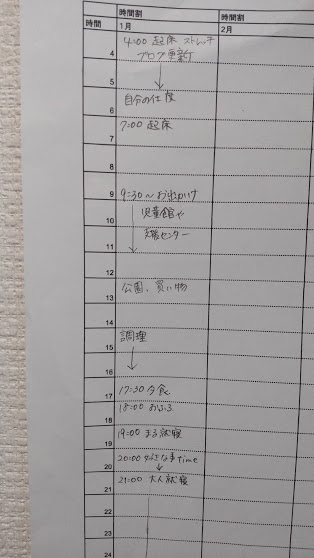 時間割 時間割
時間 1月 2月
4:00 起床 ストレッチ
4 ブログ更新
5
6 自分の仕度
7:00 起床
7
8
9 9:30～お出かけ
10 児童館や
11 支援センター
12
13 公園、買い物
14
調理
15
16
17 17:30 夕食
18 18:00 おふろ
19 19:00 まる就寝
20 20:00 好きな事time
21 21:00 大人就寝
22
23
24